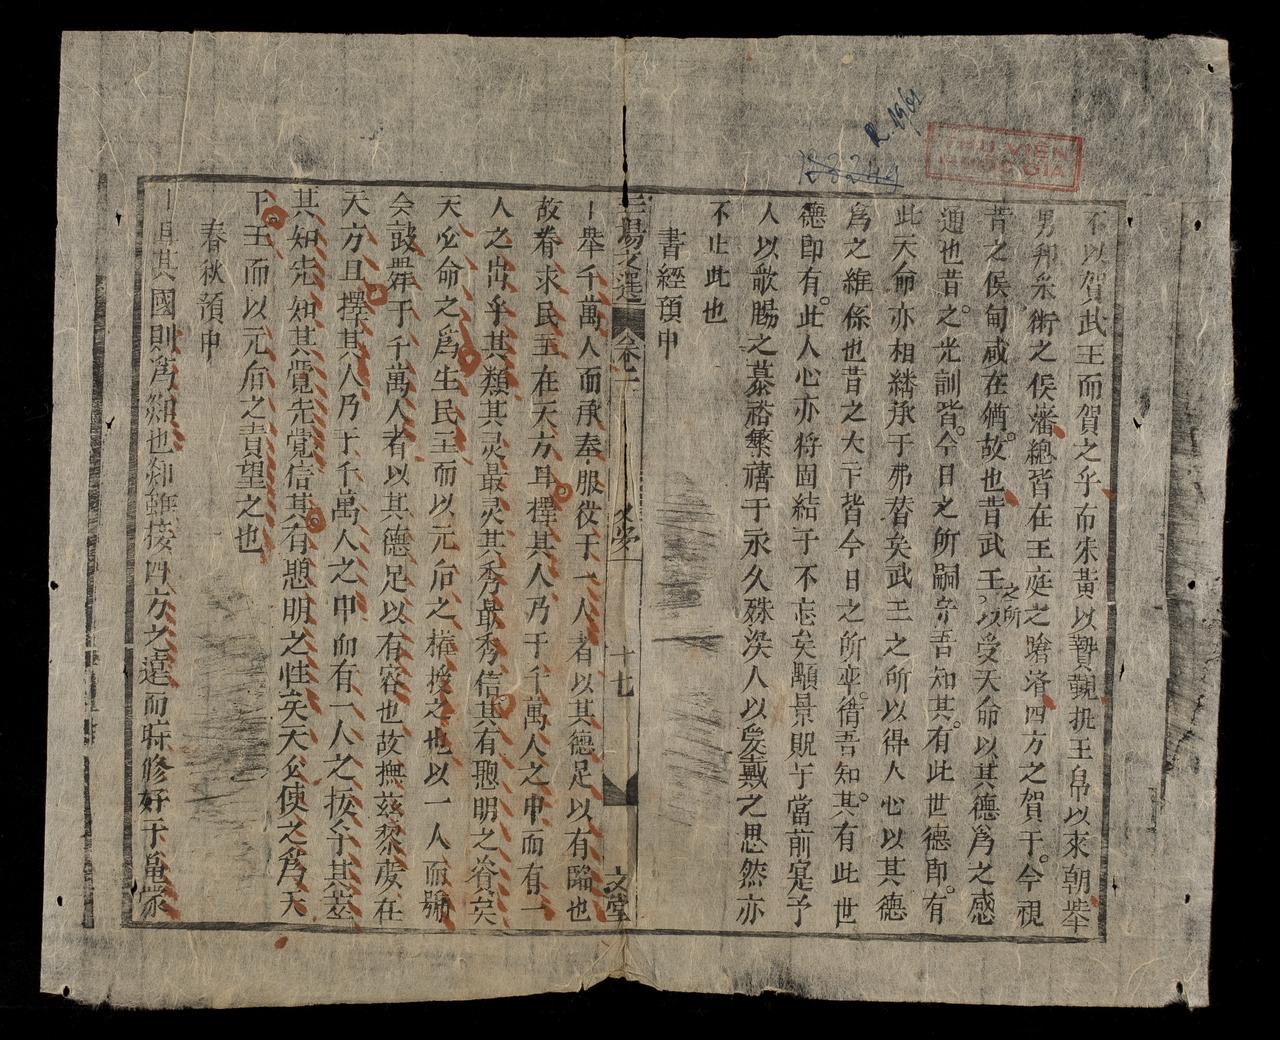 R.1961
THƯ VIỆN
QUỐC GIA
不以賀武王而賀之乎布朱黃以贄觀執王帛以來朝舉
男邦采衛之侯藩總皆在王庭之蹌濟四方之賀于今視
昔之侯甸咸在猶故也昔武王以受天命以其德爲之感
之所
通也昔之光訓皆今日之所嗣守吾知其有此世德即有
此天命亦相繼承于弗替矣武王之所以得人心以其德
爲之維係也昔之大下皆今日之所率循吾知其有此世
德即有此人心亦将固結于不忘矣顒景貺于當前寔予
人以歌賜之慕裕繁禧于永久殊深人以爱戴之思然亦
不止此也
書經預中
三塲文選 卷二 文孝一 十七 文堂
舉千萬人而承奉服役于一人者以其德足以有臨也
故眷求民主在天方且擇其人乃于千萬人之中而有一
人之出乎其類其灵最灵其秀最秀信其有聰明之資矣
天必命之爲生民主而以元后之權授之也以一人而號
令鼓舞于千萬人者以其德足以有容也故撫玆黎庶在
天方且擇其人乃于千萬人之中而有一人之拔乎其萃
其知先知其覺先覺信其有聰明之性矣天必使之爲天
下王而以元后之責望之也
春秋預中
且其國則爲邾也邾雖接四方之遠而哧修好于黾衆